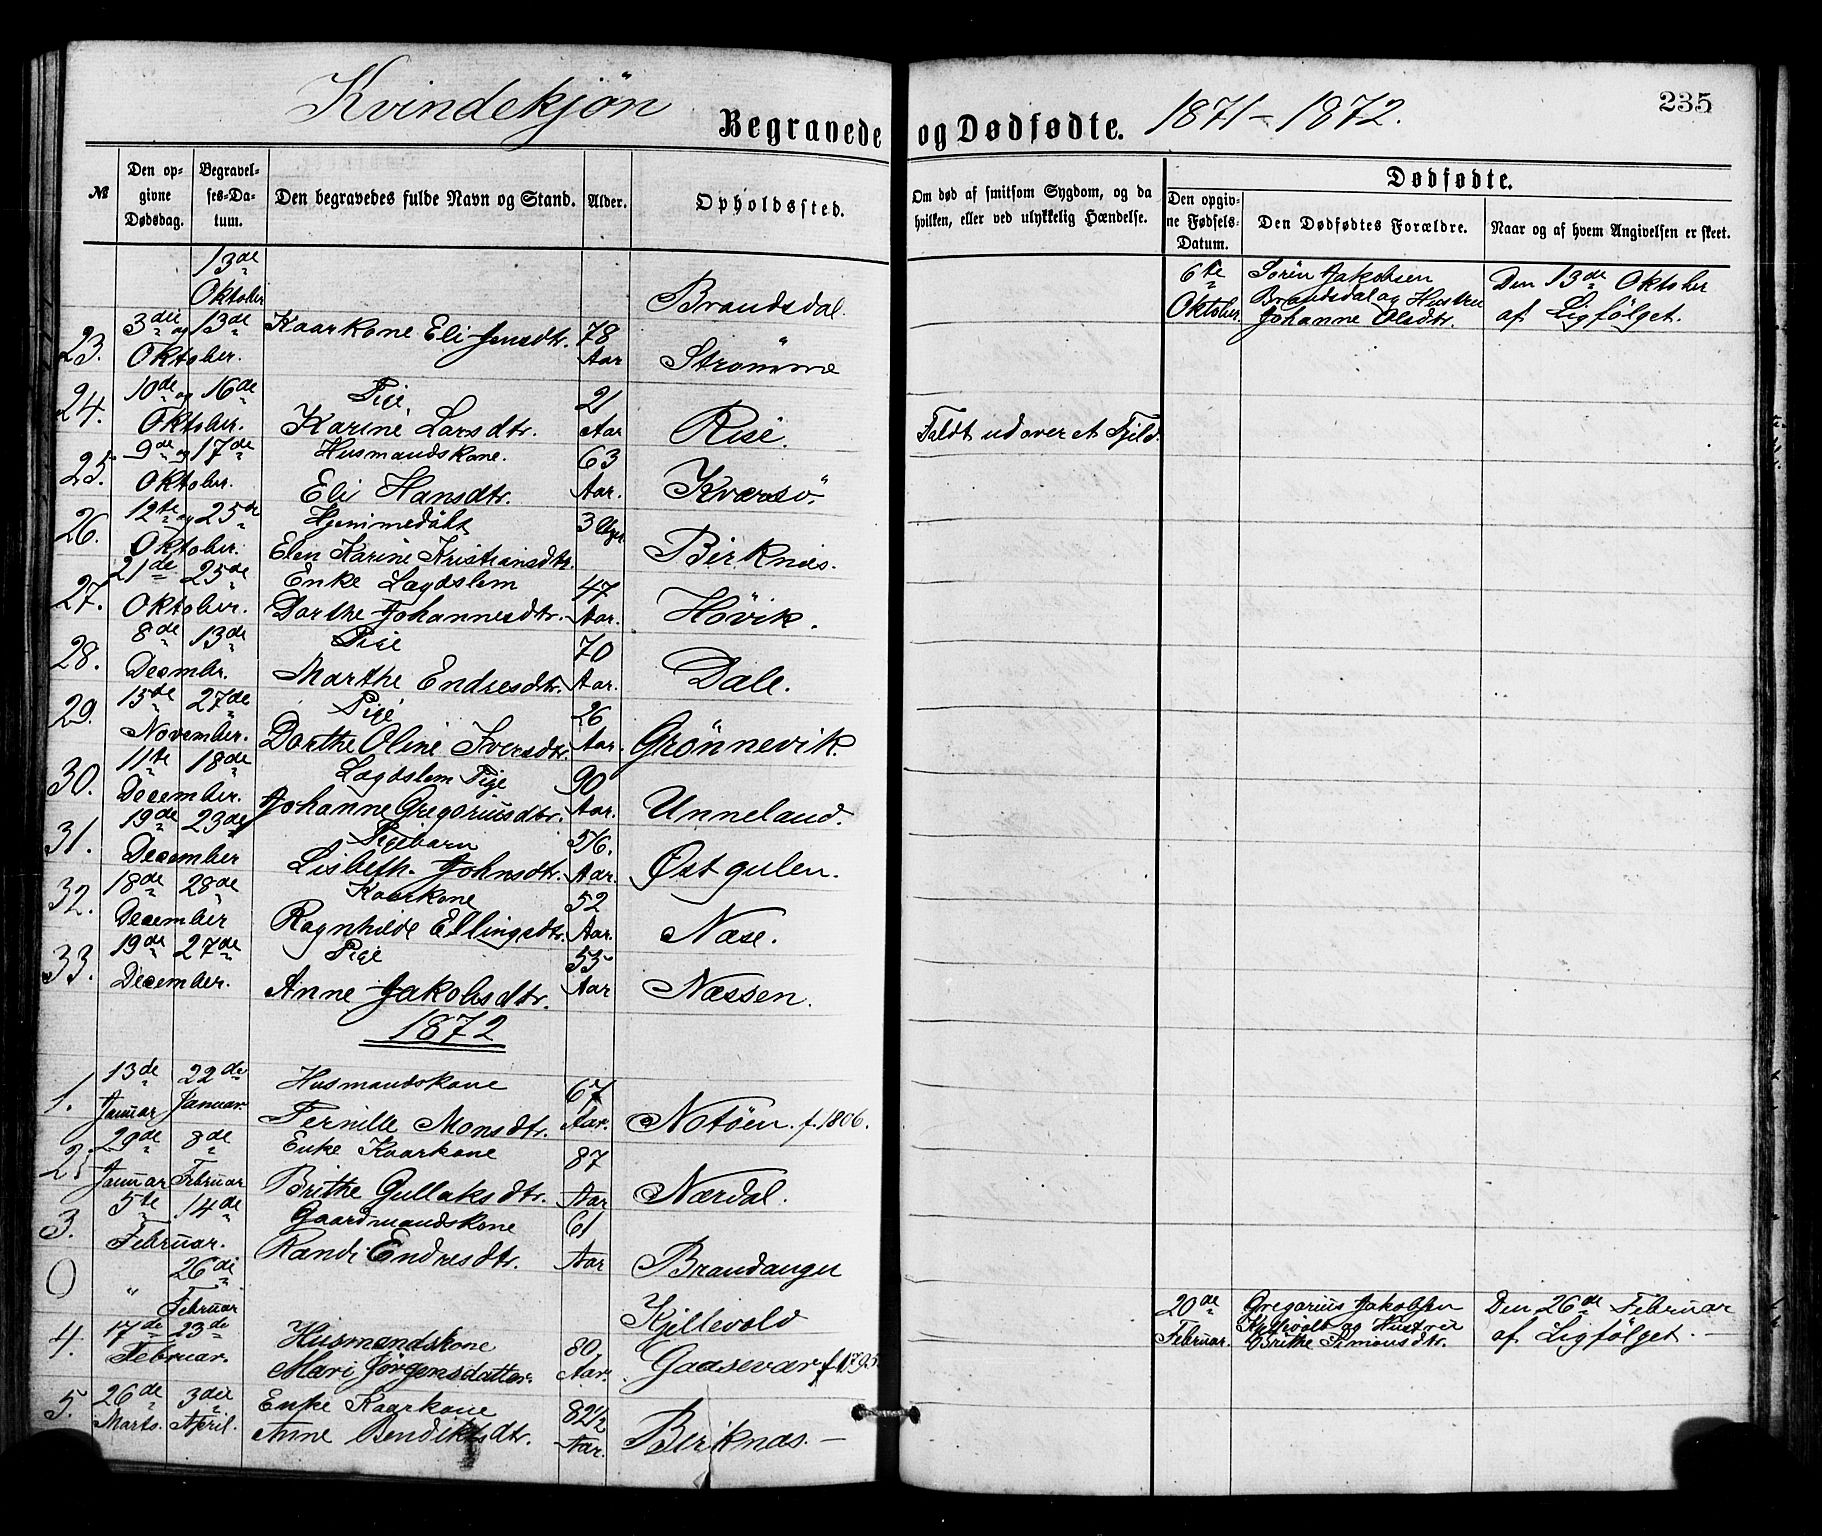 Kvindekjön
Begravede og Dødfødte. 1871-1872.
235
№
Den opgivne Dødsdag.
Begravelses-Datum.
Den begravedes fulde Navn og Stand.
Alder.
Opholdssted.
Om død af smitsom Sygdom, og da hvilken, eller ved ulykkelig Hændelse.
Dødfødte.
Den opgivne Fødsels-Datum.
Den Dødfødtes Forældre.
Naar og af hvem Angivelsen er skeet.
13de Oktober
Brandsdal.
6te Oktober.
Sören Jakobsen
Brandsdal og Hustru
Johanne Olsdtr.
Den 13de Oktober
af Ligfölget.
23. 3die og 13de Oktober. Kaarkone Eli Jensdtr. 78 Aar Strömme
24. 10de og 16de Oktober. Pige
Karine Larsdtr. 21 Aar Rise. Faldt ud over et Fjeld
25. 9de og 17de Oktober. Husmandskone.
Eli Hansdtr. 63 Aar. Kversö
26. 12te og 25de Oktober. Hjemmedöbt
Elen Karine Kristiansdtr. 3 Uger Birknes.
27. 21de 25de Oktober. Enke Lægdslem
Dorthe Johannesdtr. 47 Aar. Hövik.
28. 8de 13de Decembr. Pige
Marthe Endresdtr. 70 Aar. Dale.
29. 15de 27de November. Pige
Dorthe Oline Iversdtr. 26 Aar. Grönnevik.
30. 11te 18de December. Lægdslem Pige
Johanne Gregoriusdtr. 90 Aar. Unneland.
31. 19de 23de December Pigebarn
Lisbeth Johnsdtr. 5/6. Aar. Østgulen.
32. 18de 28de December Kaarkone
Ragnhilde Ellingsdtr. 52 Aar. Næse.
33. 19de 27de December. Pige
Anne Jakobsdtr. 55 Aar Næssen.
1872
1. 13de Januar 22de Januar. Husmandskone
Pernille Monsdtr. 67 Aar. Notöen. f. 1806.
2. 29de Januar 8de Februar Enke Kaarkone
Brithe Gullaksdtr. 87 Aar Nærdal.
3. 5te 14de Februar. Gaardmandskone
Randi Endresdtr. 61 Aar Brandanger
0 " 26de Februar Kjellevold
20de Februar.
Gregorius Jakobsen
Kjellevold og Hustru
Brithe Simonsdtr.
Den 26de Februar
af Ligfölget. -
4. 17de 23de Februar. Husmandskone
Mari Jörgensdatter. 80 Aar. Gaasevær f. 1795
5. 26de Marts. 3die April. Enke Kaarkone
Anne Bendiktsdtr. 82 1/2 Aar. Birknæs. -